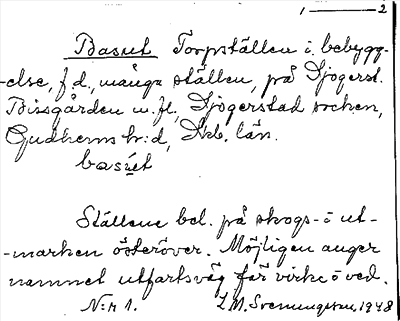 1 ——— 2
Baseut Torpställen i bebygg-
-else, f.d., många ställen, på Djögerst.
Bissgården m.fl., Djögerstad socken,
Gudhems h:d, Skb. län.
baséut
Ställena bel. på skogs- o ut-
-marken österöver. Möjligen anger
namnet utfartsväg för virke o ved.
N:r 1. L.M. Svenungsson, 1948